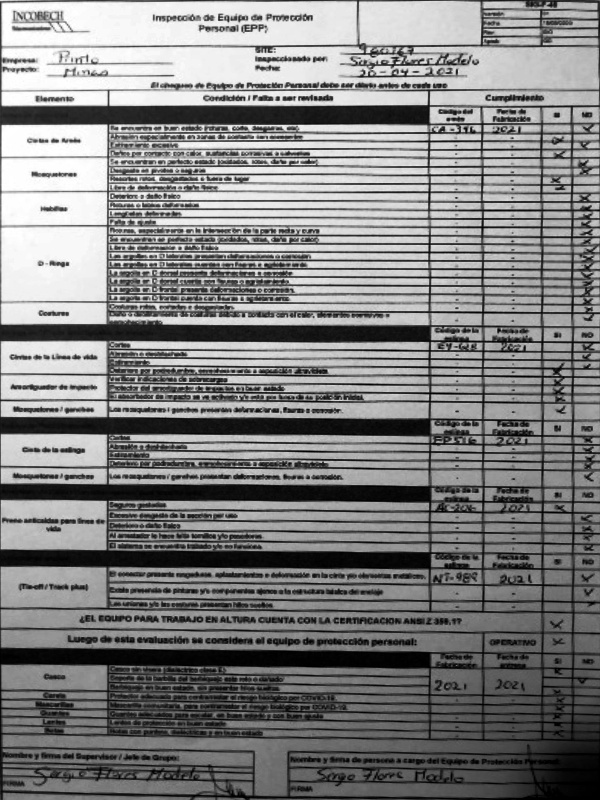 INCOBECH
Inspección de Equipo de Protección
Personal (EPP)
SIG-F-48
Empresa: Pimto
Proyecto: Mingo
SITE: 980767
Inspeccionado por: Sergio Flores Modelo
Fecha: 20-04-2021
El chequeo de Equipo de Protección Personal debe ser diario antes de cada uso
Elemento Condición / Falta a ser revisada Cumplimiento
Código del arnés Fecha de Fabricación SI NO
Cintas de Arnés
Se encuentra en buen estado (roturas, corte, desgarros, etc) CA-346 2021
Abrasión especialmente en zonas de contacto con
Estiramiento excesivo
Daños por contacto con calor, sustancias corrosivas o solventes
Mosquetones
Se encuentran en perfecto estado (oxidados, rotos, daño por calor)
Desgaste en pivotes o seguros
Resortes rotos, desgastados o fuera de lugar
Libre de deformación o daño físico
Hebillas
Deterioro o daño físico
Roturas o lados deformados
Lengüetas deformadas
Falta de ajuste
D - Rings
Roturas, especialmente en la intersección de la parte recta y curva
Se encuentran en perfecto estado (oxidados, rotos, daño por calor)
Libre de deformación o daño físico
Las argollas en D laterales presentan deformaciones o corrosión
Las argollas en D laterales cuentan con fisuras o agrietamiento.
La argolla en D dorsal presenta deformaciones o corrosión
La argolla en D dorsal cuenta con fisuras o agrietamiento.
La argolla en D frontal presenta deformaciones o corrosión.
La argolla en D frontal cuenta con fisuras o agrietamiento.
Costuras
Costuras rotas, cortadas o desgastadas.
Daño o debilitamiento de costuras debido a contacto con el calor, elementos corrosivos o
Código de la eslinga Fecha de Fabricación SI NO
Cintas de la Línea de vida
Cortes 2021
Abrasión o deshilachada
Estiramiento
Deterioro por podredumbre, enmohecimiento o exposición ultravioleta
Amortiguador de impacto
Verificar indicaciones de sobrecargas
Protector del amortiguador de impactos en buen estado
El absorbedor de impacto se ve activado y/o está por fuera de su posición inicial.
Mosquetones / ganchos
Los mosquetones / ganchos presentan deformaciones, fisuras o corrosión.
Código de la eslinga Fecha de Fabricación SI NO
Cinta de la eslinga
Cortes EP516 2021
Abrasión o deshilachada
Estiramiento
Deterioro por podredumbre, enmohecimiento o exposición ultravioleta
Mosquetones / ganchos
Los mosquetones / ganchos presentan deformaciones, fisuras o corrosión.
Código de la eslinga Fecha de Fabricación SI NO
Freno anticaídas para línea de vida
Seguros gastados AC-204 2021
Excesivo desgaste de la sección por uso
Deterioro o daño físico
Al arrestador le hace falta tornillos y/o pasadores.
El sistema se encuentra trabado y/o no funciona.
Código de la eslinga Fecha de Fabricación SI NO
(Tie-off / Track plus)
El conector presenta rasgaduras, aplastamientos o deformación en la cinta y/o elementos metálicos. NT-989 2021
Existe presencia de pinturas y/o componentes ajenos a la estructura básica del anclaje
Las uniones y/o las costuras presentan hilos sueltos.
¿EL EQUIPO PARA TRABAJO EN ALTURA CUENTA CON LA CERTIFICACION ANSI Z 359.1?
Luego de esta evaluación se considera el equipo de protección personal: OPERATIVO
Fecha de Fabricación Fecha de entrega SI NO
Casco
Casco sin visera (dieléctrico clase E)
Soporte de la barbilla del barbiquejo esta roto o dañado
Barbiquejo en buen estado, sin presentar hilos sueltos. 2021 2021
Careta
Protector adecuado para contrarrestar el riesgo biológico por COVID-19.
Mascarillas
Mascarilla comunitaria, para contrarrestar el riesgo biológico por COVID-19.
Guantes
Guantes adecuados para escalar, en buen estado y con buen ajuste
Lentes
Lentes de protección en buen estado
Botas
Botas con puntera, dieléctricas y en buen estado
Nombre y firma del Supervisor / Jefe de Grupo: Nombre y firma de persona a cargo del Equipo de Protección Personal:
Sergio Flores Modelo Sergo Flores Modelo
FIRMA FIRMA